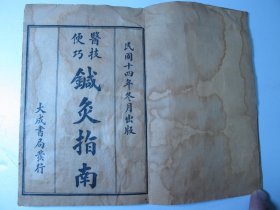 民國十四年冬月出版
醫技
便巧
鍼灸指南
大成書局發行